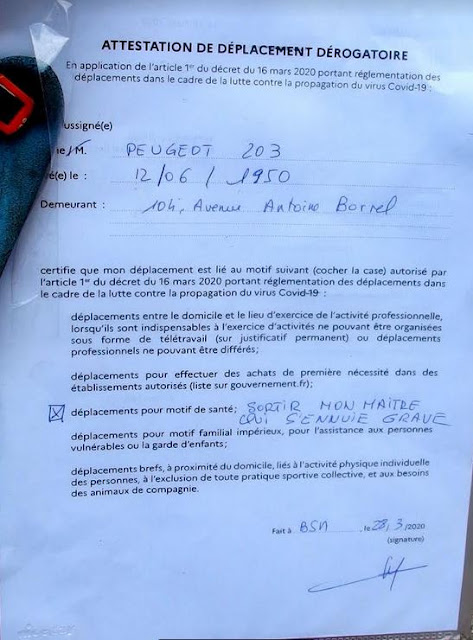 ATTESTATION DE DÉPLACEMENT DÉROGATOIRE
En application de l'article 1er du décret du 16 mars 2020 portant réglementation des
déplacements dans le cadre de la lutte contre la propagation du virus Covid-19 :
ussigné(e)
e/M. PEUGEOT 203
é(e) le : 12/06/1950
Demeurant : 104, Avenue Antoine Borrel
certifie que mon déplacement est lié au motif suivant (cocher la case) autorisé par
l'article 1er du décret du 16 mars 2020 portant réglementation des déplacements dans
le cadre de la lutte contre la propagation du virus Covid-19 :
déplacements entre le domicile et le lieu d'exercice de l'activité professionnelle,
lorsqu'ils sont indispensables à l'exercice d'activités ne pouvant être organisées
sous forme de télétravail (sur justificatif permanent) ou déplacements
professionnels ne pouvant être différés;
déplacements pour effectuer des achats de première nécessité dans des
établissements autorisés (liste sur gouvernement.fr);
déplacements pour motif de santé; SORTIR MON MAÎTRE
QUI S'ENNUIE GRAVE
déplacements pour motif familial impérieux, pour l'assistance aux personnes
vulnérables ou la garde d'enfants;
déplacements brefs, à proximité du domicile, liés à l'activité physique individuelle
des personnes, à l'exclusion de toute pratique sportive collective, et aux besoins
des animaux de compagnie.
Fait à BSM, le 28/3/2020
(signature)